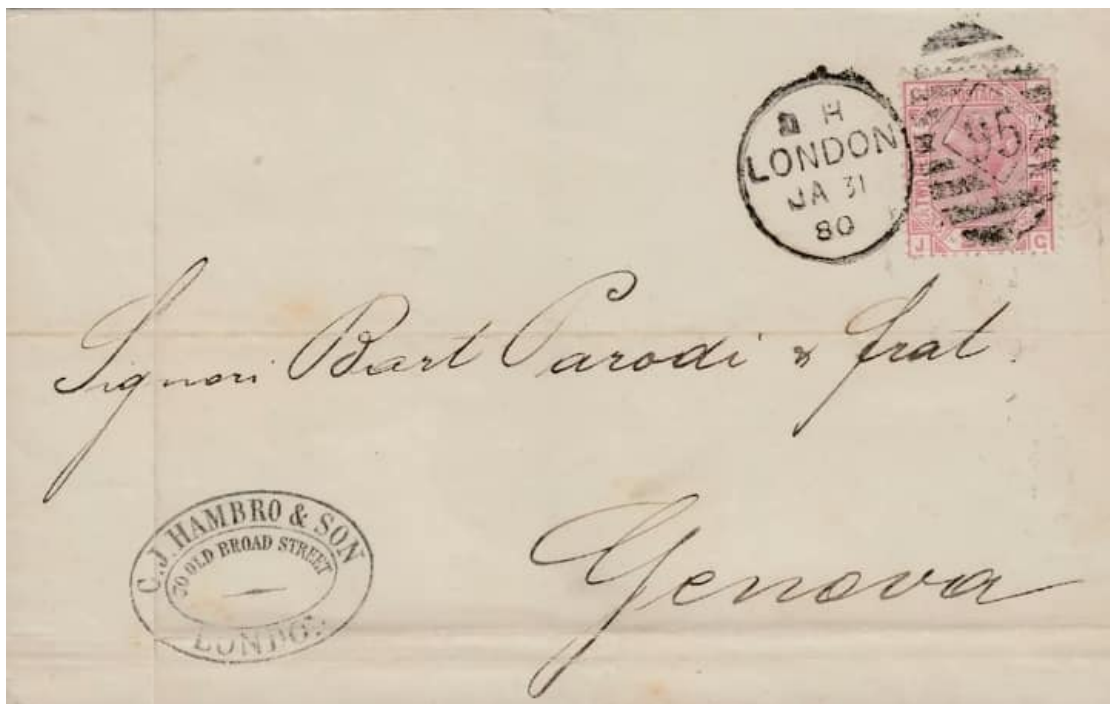 H
LONDON
JA 31
80
95
POSTAGE
J G
Signori Bart Parodi & frat.
Genova
C. J. HAMBRO & SON
70 OLD BROAD STREET
LONDON